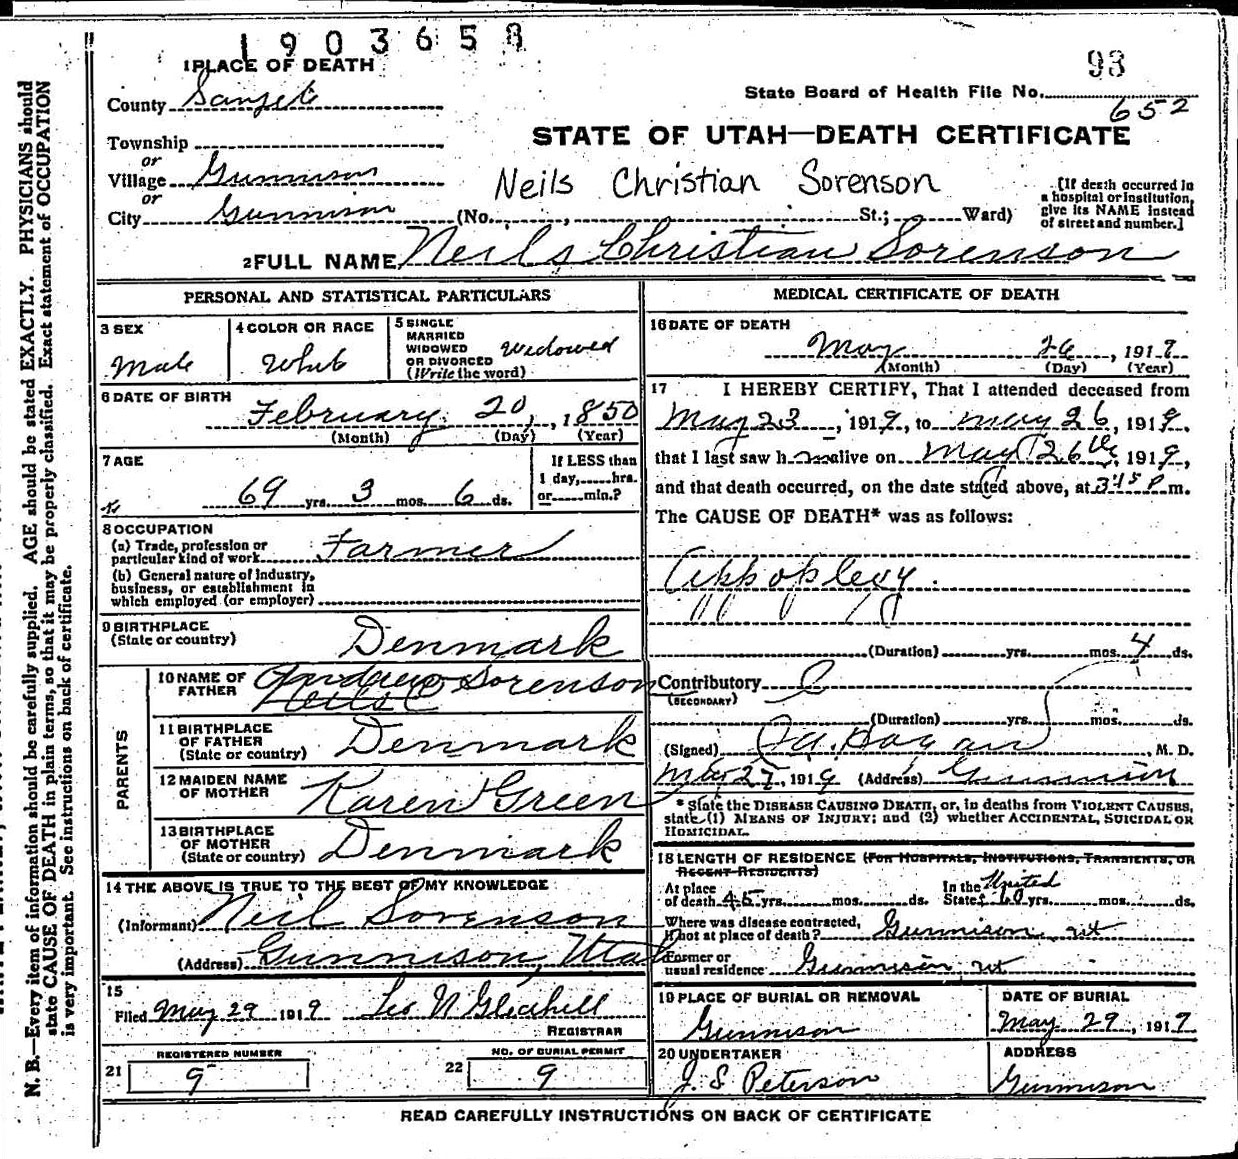 1903658
93
1 PLACE OF DEATH
County Sanpete
State Board of Health File No.
652
Township
or
Village Gunnison
or
City Gunnison (No. , St.; Ward)
STATE OF UTAH—DEATH CERTIFICATE
Neils Christian Sorenson
[If death occurred in
a hospital or institution,
give its NAME instead
of street and number.]
2 FULL NAME Neils Christian Sorenson
PERSONAL AND STATISTICAL PARTICULARS
3 SEX
Male
4 COLOR OR RACE
White
5 SINGLE
MARRIED
WIDOWED
OR DIVORCED
(Write the word)
Widowed
6 DATE OF BIRTH
February 20, 1850
(Month) (Day) (Year)
7 AGE
69 yrs. 3 mos. 6 ds.
If LESS than
1 day, hrs.
or min.?
8 OCCUPATION
(a) Trade, profession or
particular kind of work Farmer
(b) General nature of industry,
business, or establishment in
which employed (or employer)
9 BIRTHPLACE
(State or country) Denmark
PARENTS
10 NAME OF
FATHER Andrew Sorenson
11 BIRTHPLACE
OF FATHER
(State or country) Denmark
12 MAIDEN NAME
OF MOTHER Karen Green
13 BIRTHPLACE
OF MOTHER
(State or country) Denmark
14 THE ABOVE IS TRUE TO THE BEST OF MY KNOWLEDGE
(Informant) Neil Sorenson
(Address) Gunnison, Utah
15
Filed May 29 1919 Leo N Gledhill
REGISTRAR
21 REGISTERED NUMBER
9
22 NO. OF BURIAL PERMIT
9
MEDICAL CERTIFICATE OF DEATH
16 DATE OF DEATH
May 26, 1919
(Month) (Day) (Year)
17 I HEREBY CERTIFY, That I attended deceased from
May 23, 1919, to May 26, 1919,
that I last saw him alive on May 26th, 1919,
and that death occurred, on the date stated above, at 3:15 P m.
The CAUSE OF DEATH* was as follows:
Appoplexy.
(Duration) yrs. mos. 4 ds.
Contributory
(SECONDARY)
(Duration) yrs. mos. ds.
(Signed) Hagan, M. D.
May 27, 1919 (Address) Gunnison
* State the DISEASE CAUSING DEATH, or, in deaths from VIOLENT CAUSES,
state (1) MEANS OF INJURY; and (2) whether ACCIDENTAL, SUICIDAL OR
HOMICIDAL.
18 LENGTH OF RESIDENCE (FOR HOSPITALS, INSTITUTIONS, TRANSIENTS, OR
RECENT RESIDENTS)
At place
of death 45 yrs. mos. ds. In the United
States 60 yrs. mos. ds.
Where was disease contracted,
if not at place of death? Gunnison, ut
Former or
usual residence Gunnison, ut
19 PLACE OF BURIAL OR REMOVAL
Gunnison
DATE OF BURIAL
May 29, 1919
20 UNDERTAKER
J. S. Peterson
ADDRESS
Gunnison
READ CAREFULLY INSTRUCTIONS ON BACK OF CERTIFICATE
N. B.—Every item of information should be carefully supplied. AGE should be stated EXACTLY. PHYSICIANS should
state CAUSE OF DEATH in plain terms, so that it may be properly classified. Exact statement of OCCUPATION
is very important. See instructions on back of certificate.